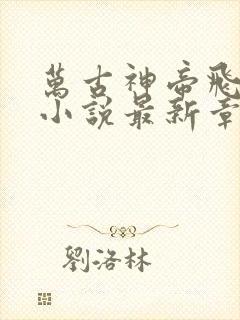 萬古神帝飛
小說最新章
劉洛林